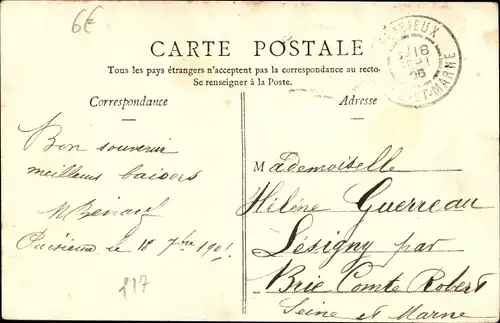 6€
CARTE POSTALE
Tous les pays étrangers n'acceptent pas la correspondance au recto.
Se renseigner à la Poste.
Correspondance
Adresse
18
MARNE
Bon souvenir
meilleurs baisers
Mademoiselle
Hélène Guerreau
Lesigny par
Brie Comte Robert
Seine et Marne
le 18 7bre 190
117